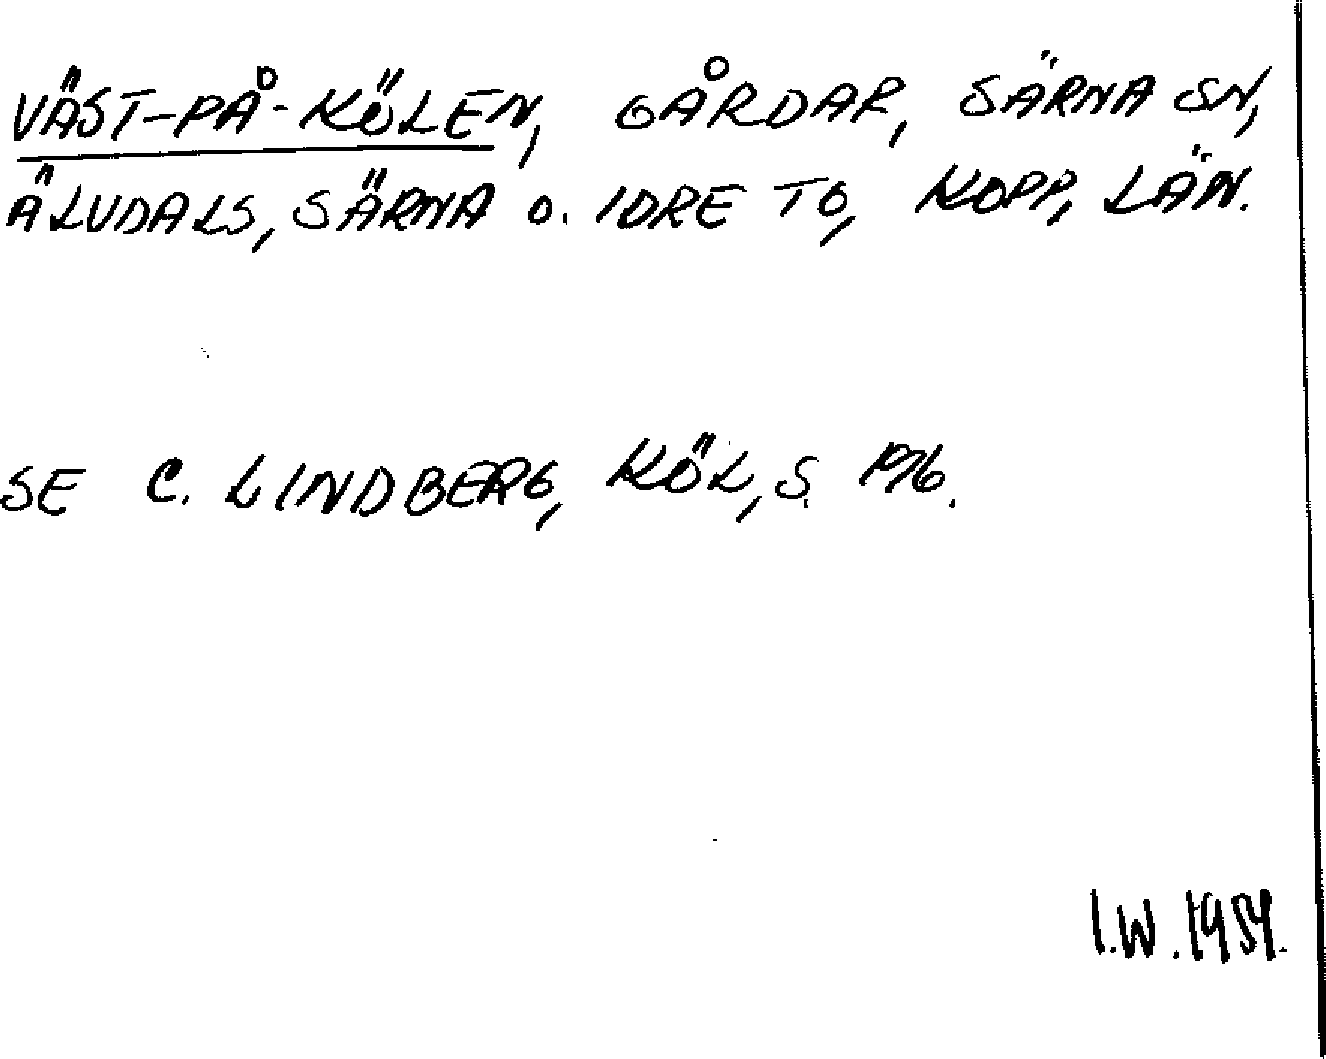 VÄST-PÅ-KÖLEN, GÅRDAR, SÄRNA SN,
ÄLVDALS, SÄRNA O. IDRE TG, KOPP, LÄN.
SE C. LINDBERG, KÖL, S.
I.W.